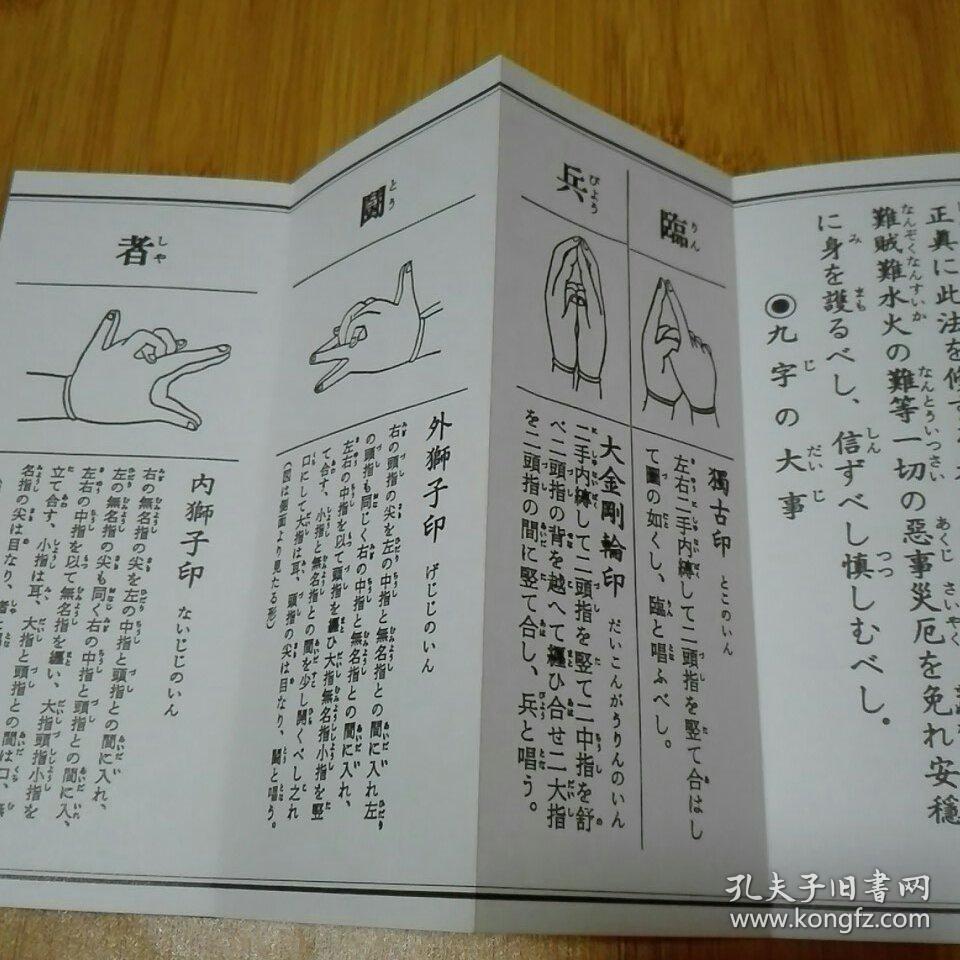 正真に此法を修
難賊難水火の難等一切の惡事災厄を免れ安穩
に身を護るべし、信ずべし慎しむべし。
◉九字の大事
臨
獨古印 とこのいん
左右二手内縛して二頭指を竪て合はし
て圖の如くし、臨と唱ふべし。
兵
大金剛輪印 だいこんがうりんのいん
二手内縛して二頭指を竪て二中指を舒
べ二頭指の背を越へて纏ひ合せ二大指
を二頭指の間に竪て合し、兵と唱う。
鬪
外獅子印 げじじのいん
右の頭指の尖を左の中指と無名指との間に入れ左
の頭指も同じく右の中指と無名指との間に入れ、
左右の中指を以て頭指を纏ひ大指無名指小指を竪
て合す、小指と無名指との間を少し開くべし之れ
口にして大指は耳、頭指の尖は目なり、鬪と唱う。
(図は側面より見たる形)
者
内獅子印 ないじじのいん
右の無名指の尖を左の中指と頭指との間に入れ、
左の無名指の尖も同く右の中指と頭指との間に入、
左右の中指を以て無名指を纏い、大指頭指小指を
立て合す、小指は耳、大指と頭指との間は口、無
名指の尖は目なり、者と
孔夫子旧书网
www.kongfz.com